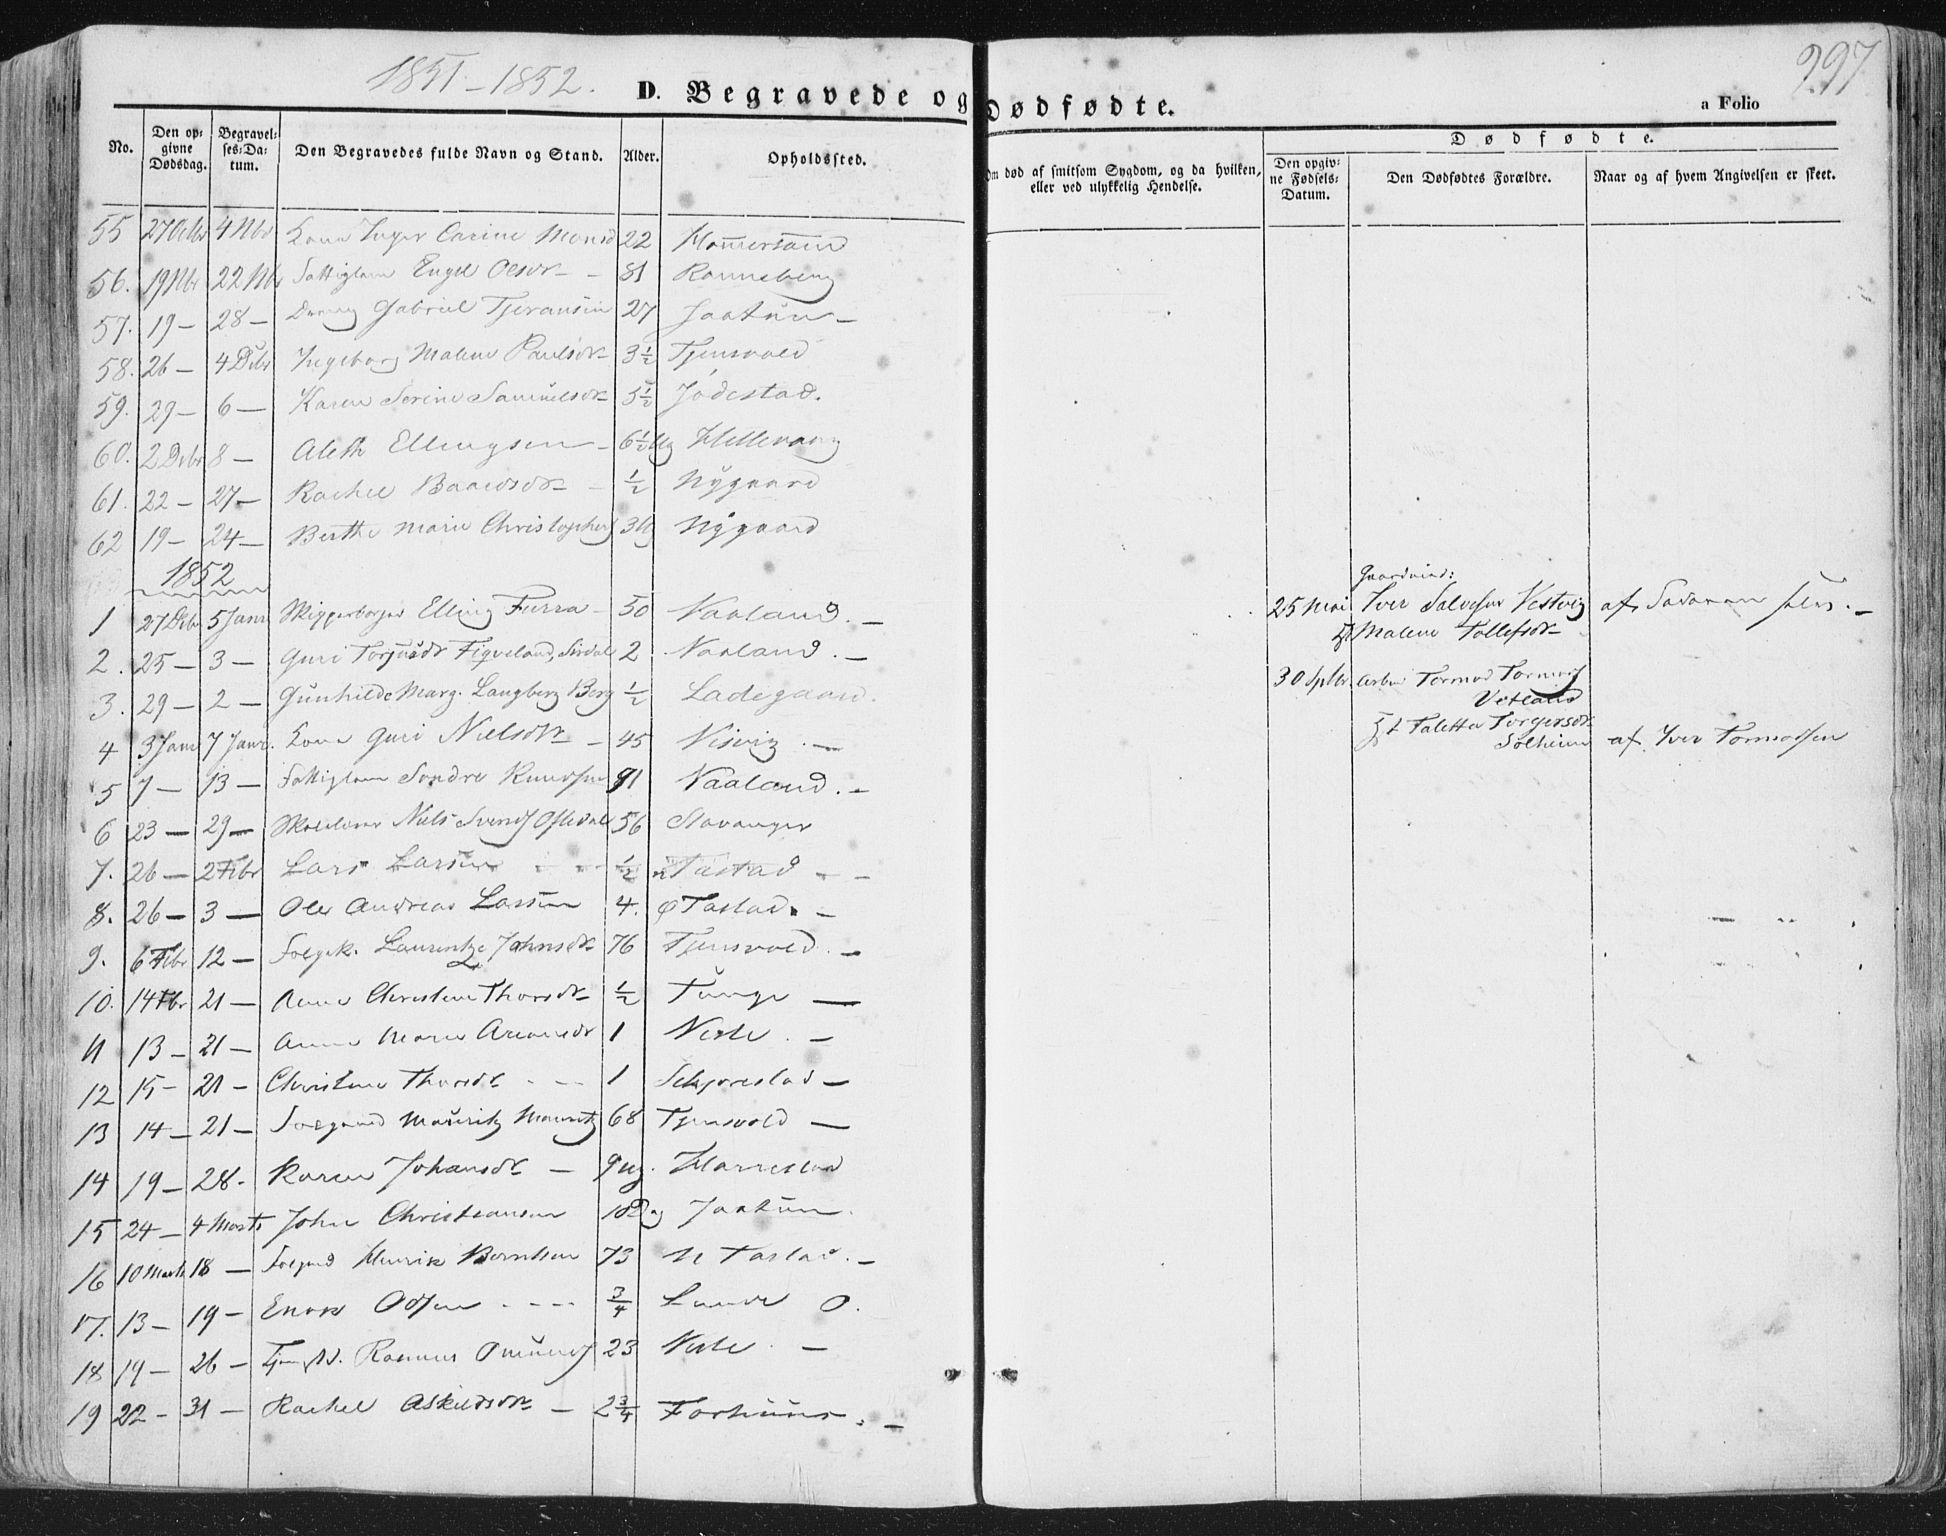 1851-1852.
D. Begravede og Dødfødte.
a Folio 297
No.
Den opgivne Dødsdag.
Begravelses-Datum.
Den Begravedes fulde Navn og Stand.
Alder.
Opholdssted.
Om død af smitsom Sygdom, og da hvilken, eller ved ulykkelig Hendelse.
Dødfødte.
Den opgivne Fødsels-Datum.
Den Dødfødtes Forældre.
Naar og af hvem Angivelsen er skeet.
55 27 Octbr 4 Nbr Kone Inger Carine Monsd 22
56. 19 Nbr 22 Nbr Fattiglem Engel Olsdr - 81 Ranneberg
57. 19 - 28 - Dreng Gabriel Tjeransen 27 Jaatun -
58. 26 - 4 Dcbr Ingeborg Malene Paulsdr 3½ Tjensvold
59. 29 - 6 - Karen Serine Samuelsdr 5½ Jødestad.
60. 2 Dcbr 8 - Aleth Ellingsen - 6½ Ug
61. 22 - 27 - Rachel Baardsdr - ½ Nygaard
62 19 - 24 - Berthe Marie Christophers 3 Ug Nygaard
1852
1 27 Dcbr 5 Janr Skipperborger Elling Furra - 50 Vaaland. -
2. 25 - 3 - Guri Torjusdr Figveland, Sirdal 2 Vaaland. -
3. 29 - 2 - Gunhilde Marg. Langberg Berg ½ Ladegaard.
4 3 Janr 7 Janr. Kone Guri Nielsdr - 45 Visvig. -
5 7 - 13 - Fattiglem Sondre Knudsen 81 Vaaland. -
6 23 - 29 - Niels Svends Ofstedal 56 Stavanger
7. 26 - 2 Febr Lars Larsen ½ n Tastad - -
8. 26 - 3 - Ole Andreas Larsen 4. ø Tastad. -
9. 6 Febr 12 - Folgek. Laurentze Johnsdr 76 Tjensvold. -
10. 14 Fbr 21 - Anne Christine Thorsdr ½ Tunge -
11 13 - 21 - Anne Marie 1 Vesle. -
12 15 - 21 - Christine Thorsdr - - - 1 -
13 14 - 21 - Folgmand Mauritz Mauritz 68 Tjensvold -
14 19 - 28 - Karen Johansdr - 9 Ug. Harrestad
15 24 - 4 Marts John Christiansen 10 Dag Jaatun.
16 10 Marts 18 - Folgmd Henrik Berntsen 73 N Tastad. -
17. 13 - 19 - Enok Odsen - - - - ¾ Lunde Ø.
18 19 - 26 - Rasmus Omunds 23 Vesle. -
19 22 - 31 - Rachel Askildsdr - 2¾ Forhuus. -
Gaardmd:
25 Mai Iver Salvesen Vestvig af Faderen selv. -
Malene Tollefsdr
30 Sptbr. Arbm Tormod Tormods
Vetland
Taletta Torgersdr
Solheim af Iver Tormodsen